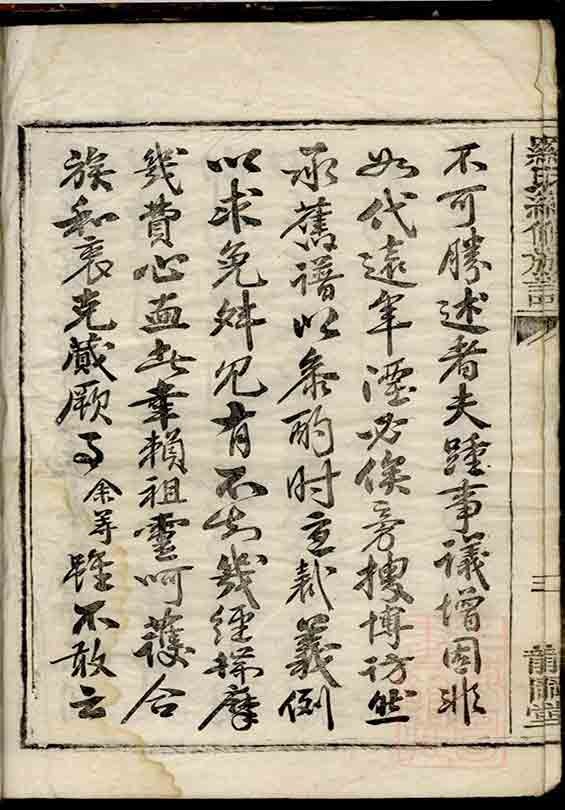 不可勝述者夫踵事議增固非
如代遠年湮必俟旁搜博訪然
承舊譜以參酌时宜裁義例
以求免舛見有不知幾經揣摩
幾費心血安幸賴祖靈呵護合
族和衷克蕆厥事余等雖不敢云
氏續修族
三
堂